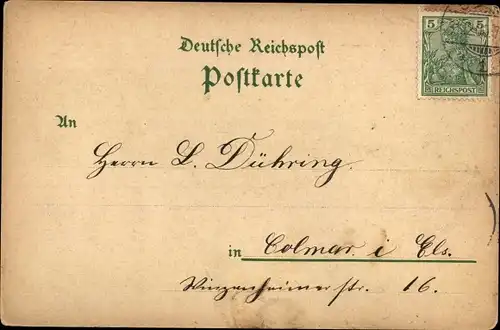 Deutsche Reichspost
Postkarte
5 5
REICHSPOST
An
Herrn L. Dühring.
in Colmar i Els.
Winzenheimerstr. 16.